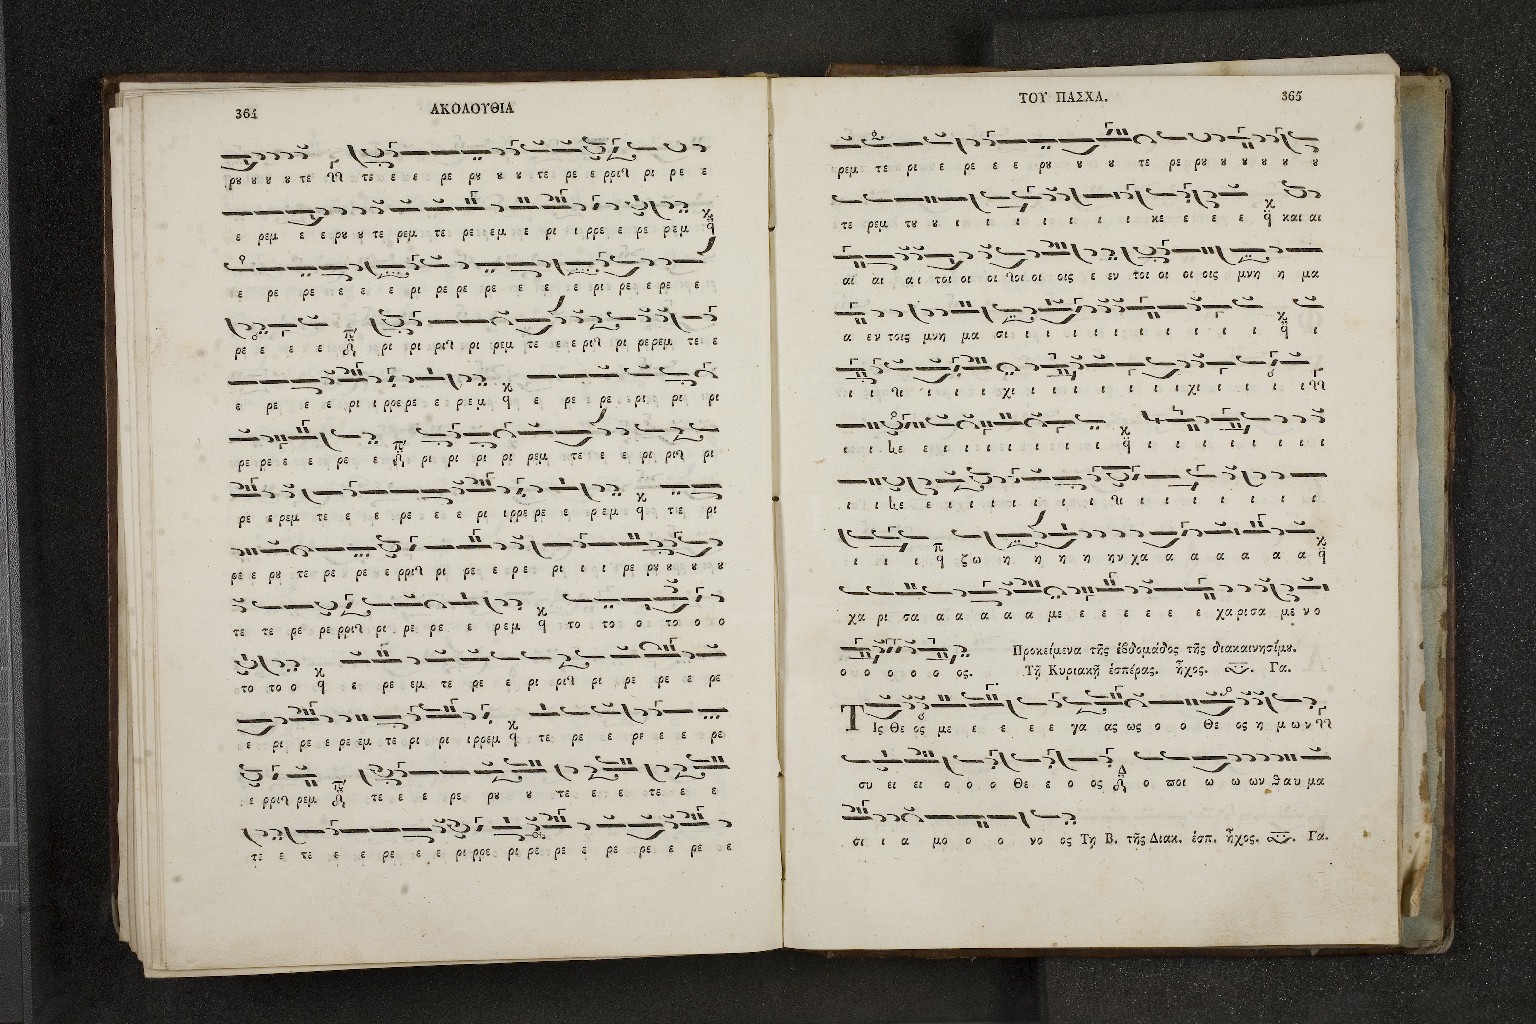 364
ΑΚΟΛΟΥΘΙΑ
ρȣ ȣ ȣ ȣ τε τε ε ε ρε ρȣ ȣ ȣ τε ρε ε ρρι ρι ρε ε
ε ρεμ ε ε ρȣ ȣ τε ρεμ τε ρε εμ ε ρι ι ρρε ε ρε ρεμ
ε ρε ρε ε ε ε ρι ρε ρε ρε ε ε ε ρι ρε ε ρε ε
ρε ε ε ε ρι ρι ρι ρι ρεμ τε ε ε ρι ρι ρε ρεμ τε ε
ε ρε ε ε ρι ι ρρε ρε ε ρεμ ε ρε ρε ρι ρι ρι
ρε ρε ε ε ρε ε ρι ρι ρι ρι ρεμ τε ε ε ρι ρι ρι
ρε ε ρεμ τε ε ε ρε ε ε ρι ι ρρε ρε ε ρεμ τι ε ρι
ρε ε ρȣ τε ρε ρε ε ρρι ρι ρε ε ρε ρι ι ι ρε ρȣ ȣ ȣ ȣ
τε τε ρε ρε ρρι ρι ρε ρε ε ρεμ το το ο το ο ο
το το ο ε ρε εμ τε ρε ε ρι ρι ρι ρε ρε ε ρε
ε ρι ρε ε ρε εμ τε ρι ρι ι ρρεμ τε ρε ε ρε ε ε ρε
ε ρρι ρεμ τε ε ε ρε ρȣ ȣ τε ε ε τε ε ε
τε ε τε ε ε ρε ε ε ρι ρρε ρι ρε ρε ε ρε ρε ε ρε ε
ΤΟΥ ΠΑΣΧΑ.
365
ρεμ τε ρι ε ρε ε ε ρȣ ȣ ȣ τε ρε ρȣ ȣ ȣ ȣ ȣ ȣ
τε ρεμ τȣ ȣ ι ι ι ι ι ι ι κε ε ε ε και αι
αι αι αι τοι οι οι τοι οι οις ε εν τοι οι οι οις μνη η μα
α εν τοις μνη μα σι ι ι ι ι ι ι ι ι ι ι ι
ι ι ι ι χι ι ι ι ι ι ι χι ι ι ι ι ι
ι ι ε ι ι ι ι ι ι ι ι ι ι ι ι ι ι
ι ι ε ι ι ι ι ι ι ι ι ι ι ι ι ι
ι ι ι ζω η η η η ην χα α α α α α α α
χα ρι σα α α α α α με ε ε ε ε ε χα ρι σα με νο
ο ο ο ο ο ος. Προκείμενα τῆς ἑβδομάδος τῆς διακαινησίμȣ.
Τῇ Κυριακῇ ἑσπέρας. ἦχος. Γα.
Τ
Ις Θε ος με ε ε ε ε γα ας ως ο ο Θε ος η μων
συ ει ει ο ο ο Θε ε ο ος ο ποι ω ω ων θαυ μα
σι ι α μο ο ο νο ος Τῃ Β. τῆς Διακ. ἑσπ. ἦχος. Γα.